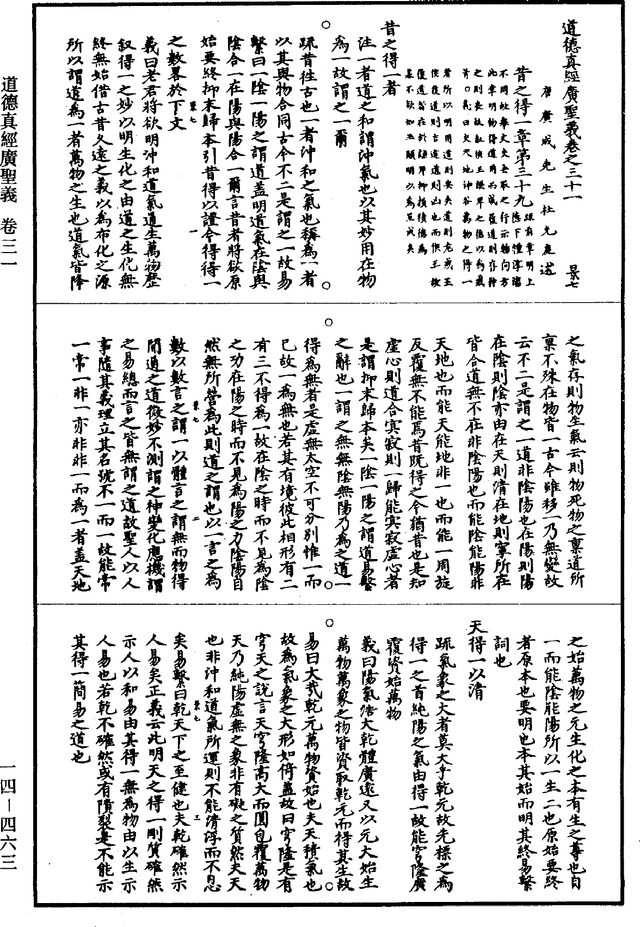 道德真經廣聖義卷之三十一 景七
唐廣成先生杜光庭述
昔之得一章第三十九
昔之得一者
注一者道之和謂沖氣也以其妙用在物
為一故謂之一爾
疏昔往古也一者沖和之氣也稱為一者
以其與物合同古今不二是謂之一故易
繫曰一陰一陽之謂道蓋明道氣在陰與
陰合一在陽與陽合一爾言昔者將欲原
始要終抑末歸本引昔得以證今得得一
之數畧於下文
義曰老君將欲明沖和道氣道生萬物歷
叙得一之妙以明生化之由道之生化無
終無始借古昔久遠之義以為布化之源
所以謂道為一者萬物之生也道氣皆降
之氣存則物生氣亡則物死物之稟道所
稟不殊在物皆一古今雖移一乃無變故
云不二是謂之一道非陰陽也在陽則陽
在陰則陰亦由在天則清在地則寧所在
皆合道無不在非陰陽也而能陰能陽非
天地也而能天能地非一也而能一周旋
反覆無不能焉昔既得之今猶昔也是知
虛心則道合寞寂則一歸能寞寂虛心者
是謂抑末歸本矣一陰一陽之謂道易繫
之辭也一謂之無無陰無陽乃為之道一
得為無者是虛無太空不可分別惟一而
已故一為無也若其有境彼此相形有二
有三不得為一故在陰之時而不見為陰
之功在陽之時而不見為陽之力陰陽自
然無所營為此則道之謂也以一言之為
數以數言之謂一以體言之謂無而物得
開通之道微妙不測謂之神變化應機謂
之易總而言之皆無謂之道故聖人以人
事隨其義理立其名號不一而一故能常
一常一非一亦非非一而為一者蓋天地
之始萬物之元生化之本有生之尊也自
一而能陰能陽所以一生二也原始要終
者原本也要明也本其始而明其終易繫
詞也
天得一以清
疏氣象之大者莫大乎乾元故先標之為
得一之首純陽之氣由得一故能穹隆廣
覆資始萬物
義曰陽氣浩大乾體廣遠又以元大始生
萬物萬象之物皆資取乾元而得其生故
易曰大哉乾元萬物資始也夫天積氣也
故為氣象之大形如倚蓋故曰穹隆是有
穹天之說言天穹隆高大而圓包覆萬物
天乃純陽虛無之象非有礙之質然夫天
也非沖和道氣所運則不能清浮而不息
矣易繫曰乾天下之至健也夫乾確然示
人易矣正義云此明天之得一剛質確然
示人以和易由其得一無為物由以生示
人易也若乾不確然或有隤裂是不能示
其得一簡易之道也
道德真經廣聖義 卷三一
一四—四六三